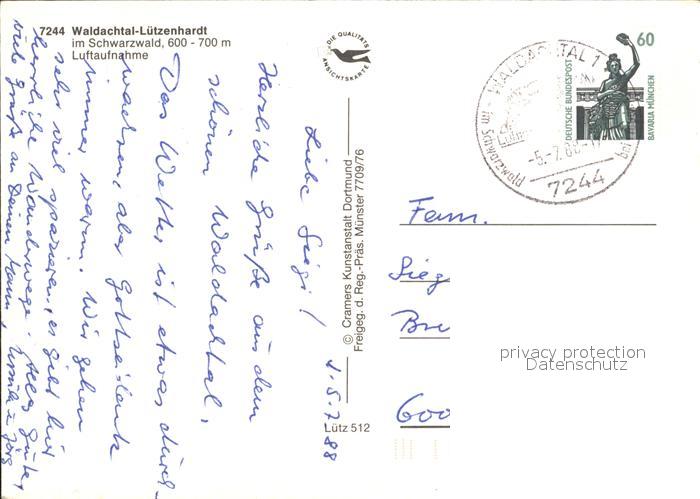 7244 Waldachtal-Lützenhardt
im Schwarzwald, 600 - 700 m
Luftaufnahme
DIE QUALITÄTS
ANSICHTSKARTE
60
DEUTSCHE BUNDESPOST
BAVARIA MÜNCHEN
WALDACHTAL 1
im Schwarzwald
-5.-7.88
7244
© Cramers Kunstanstalt Dortmund
Freigeg. d. Reg.-Präs. Münster 7709/76
Lütz 512
5.7.88
Liebe Sigi!
Herzliche Grüße aus dem
schönen Waldachtal.
Das Wetter ist etwas durch-
wachsen, aber Gottseidank
immer warm. Wir gehen
sehr viel spazieren, es gibt hier
herrliche Wanderwege. Alles Gute,
viele Grüße an Deinen Mann, Ursula u. Jörg
Fam.
Sieg
Bre
600
privacy protection
Datenschutz